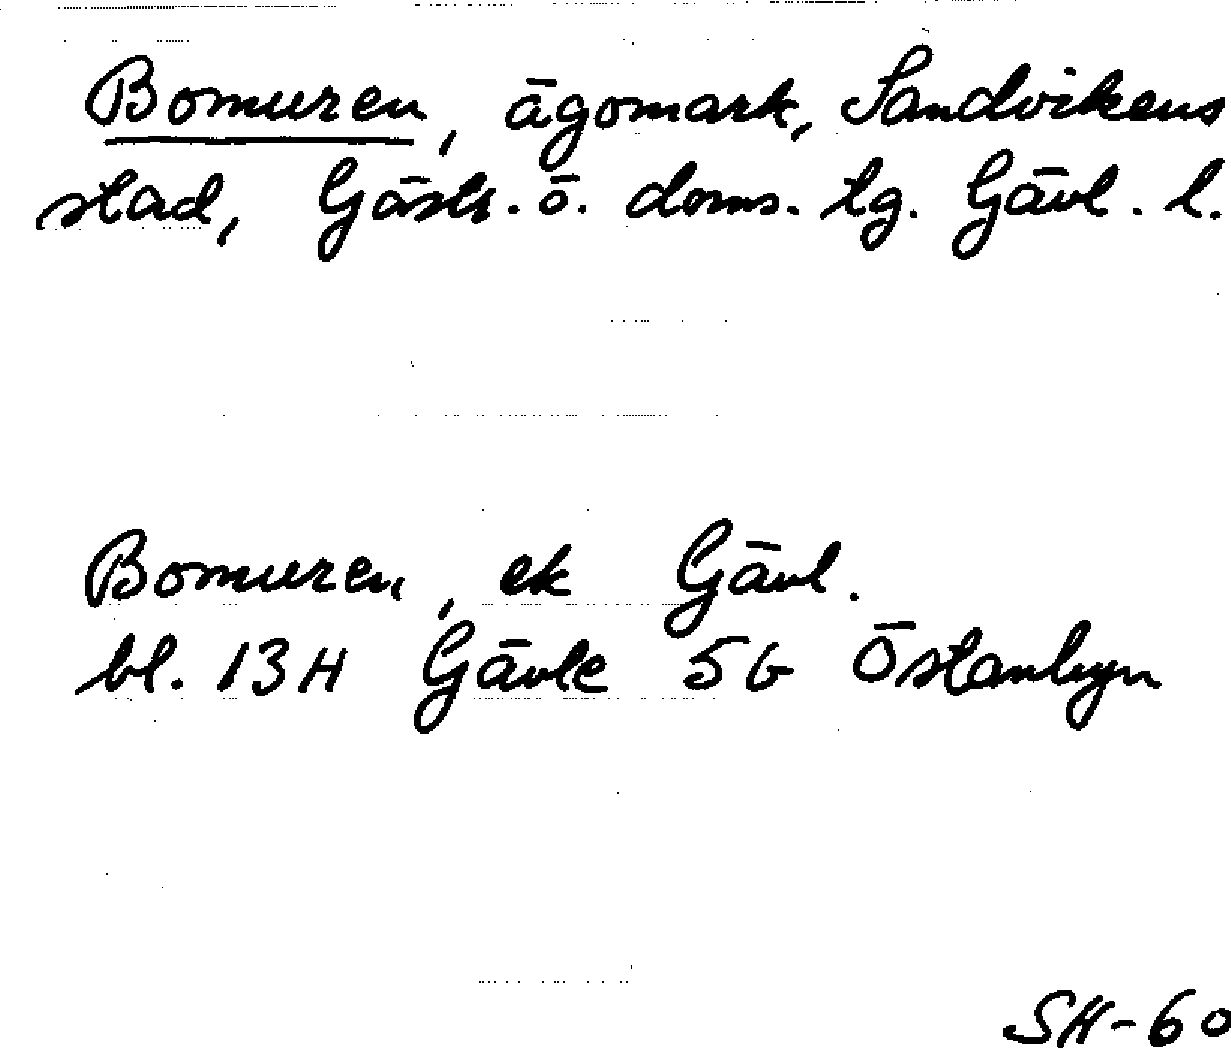 Bomuren, ägomark, Sandvikens
stad, Gästr. ö. doms. tg. Gävl. l.
Bomuren, ek Gävl.
bl. 13H Gävle 5b Östanbyn
SH-60